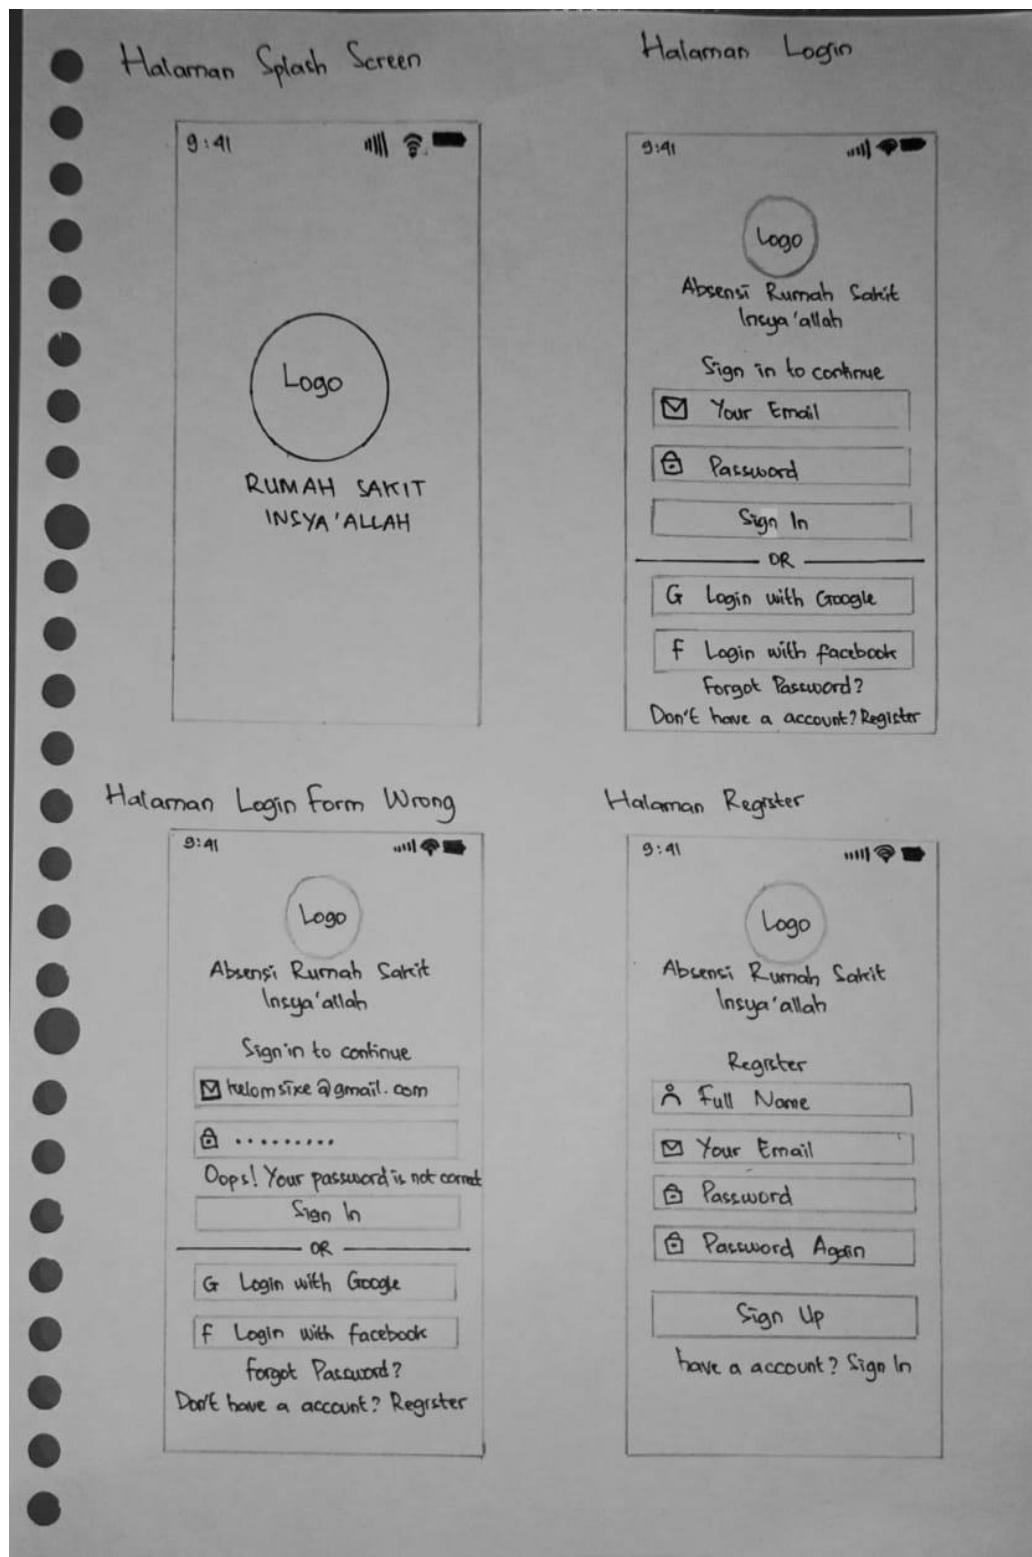 Halaman Splash Screen
9:41
Logo
RUMAH SAKIT
INSYA'ALLAH
Halaman Login
9:41
Logo
Absensi Rumah Sakit
Insya'allah
Sign in to continue
Your Email
Password
Sign In
OR
G Login with Google
f Login with facebook
Forgot Password?
Don't have a account? Register
Halaman Login Form Wrong
9:41
Logo
Absensi Rumah Sakit
Insya'allah
Sign in to continue
@gmail.com
.........
Oops! Your password is not correct
Sign In
OR
G Login with Google
f Login with facebook
Forgot Password?
Don't have a account? Register
Halaman Register
9:41
Logo
Absensi Rumah Sakit
Insya'allah
Register
Full Name
Your Email
Password
Password Again
Sign Up
have a account? Sign In